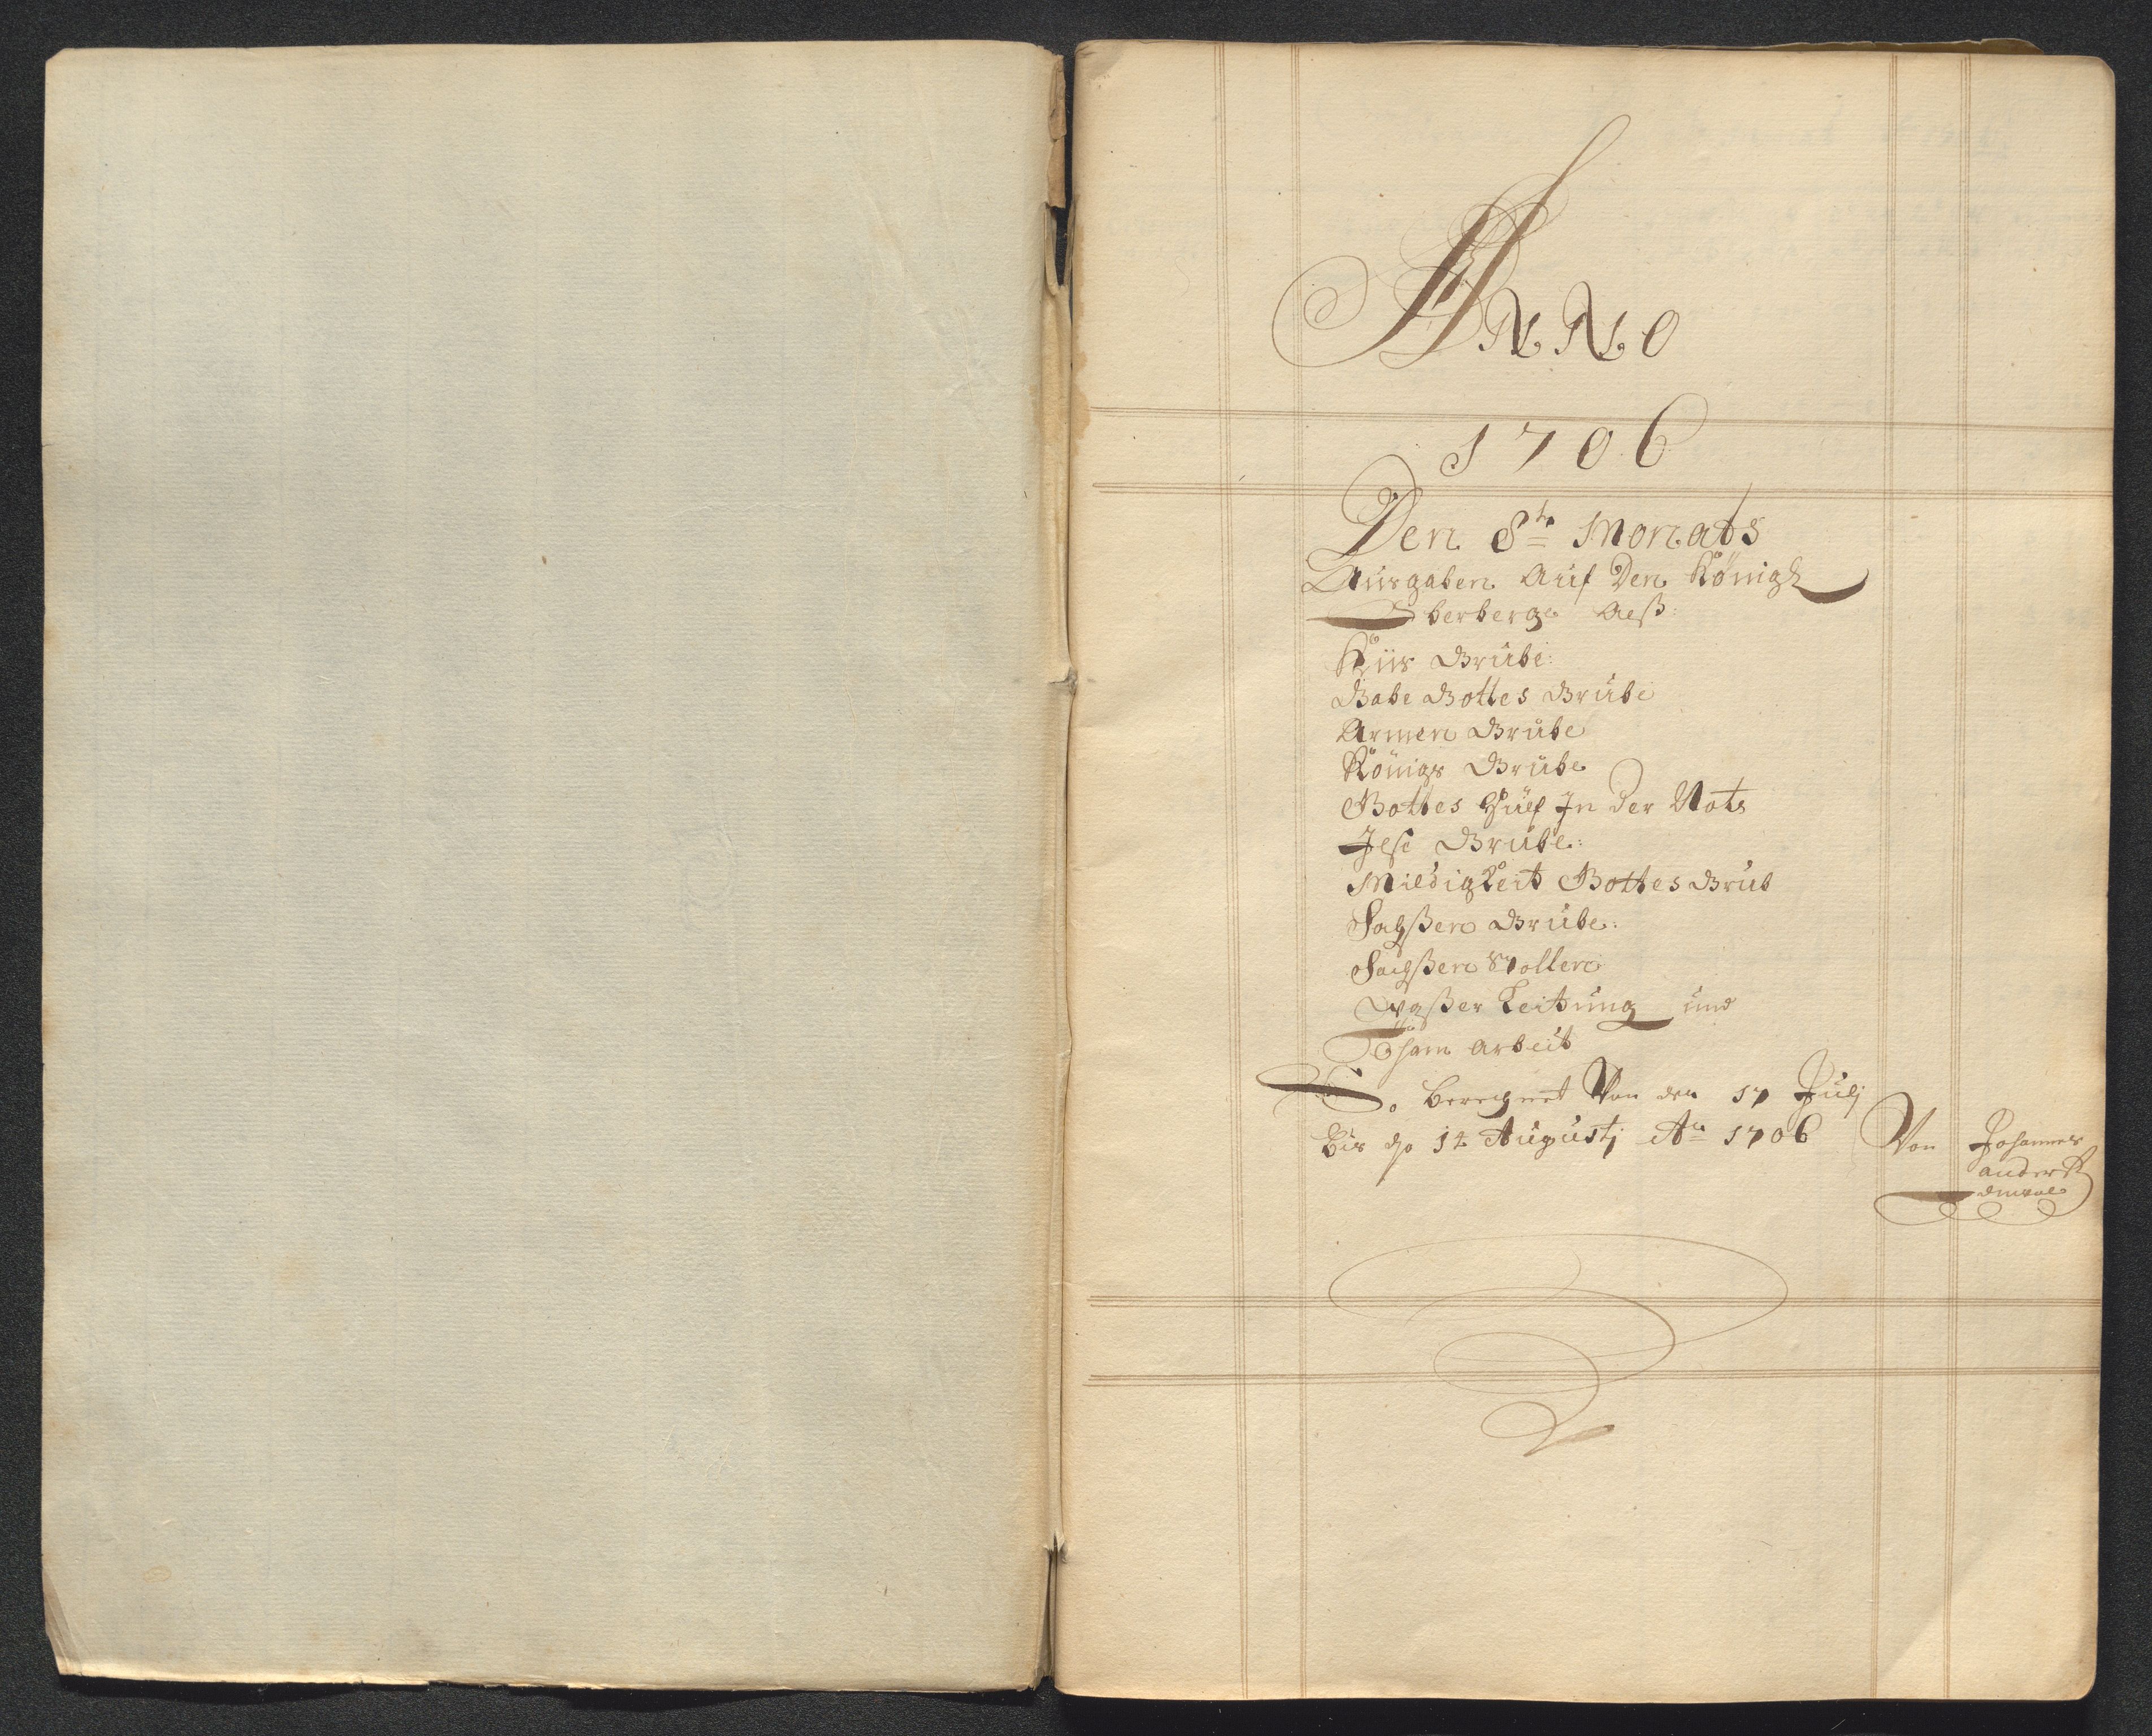 ANNO
1706
Den 8te Monats
Ausgaben Auf Den Königl
Oberberge Alß:
Hüs Grube:
Gabe Gottes Grube
Armen Grube
Königs Grube
Gottes Hülf In der Noth
Grube:
Mildigkeit Gottes Grub
Sachßen Grube:
Sachßen Stollen
Waßer Leitung und
arbeit
So berechnet Von den 17 Julj
Bis do 14 Augustj Ao 1706
Von Johannes